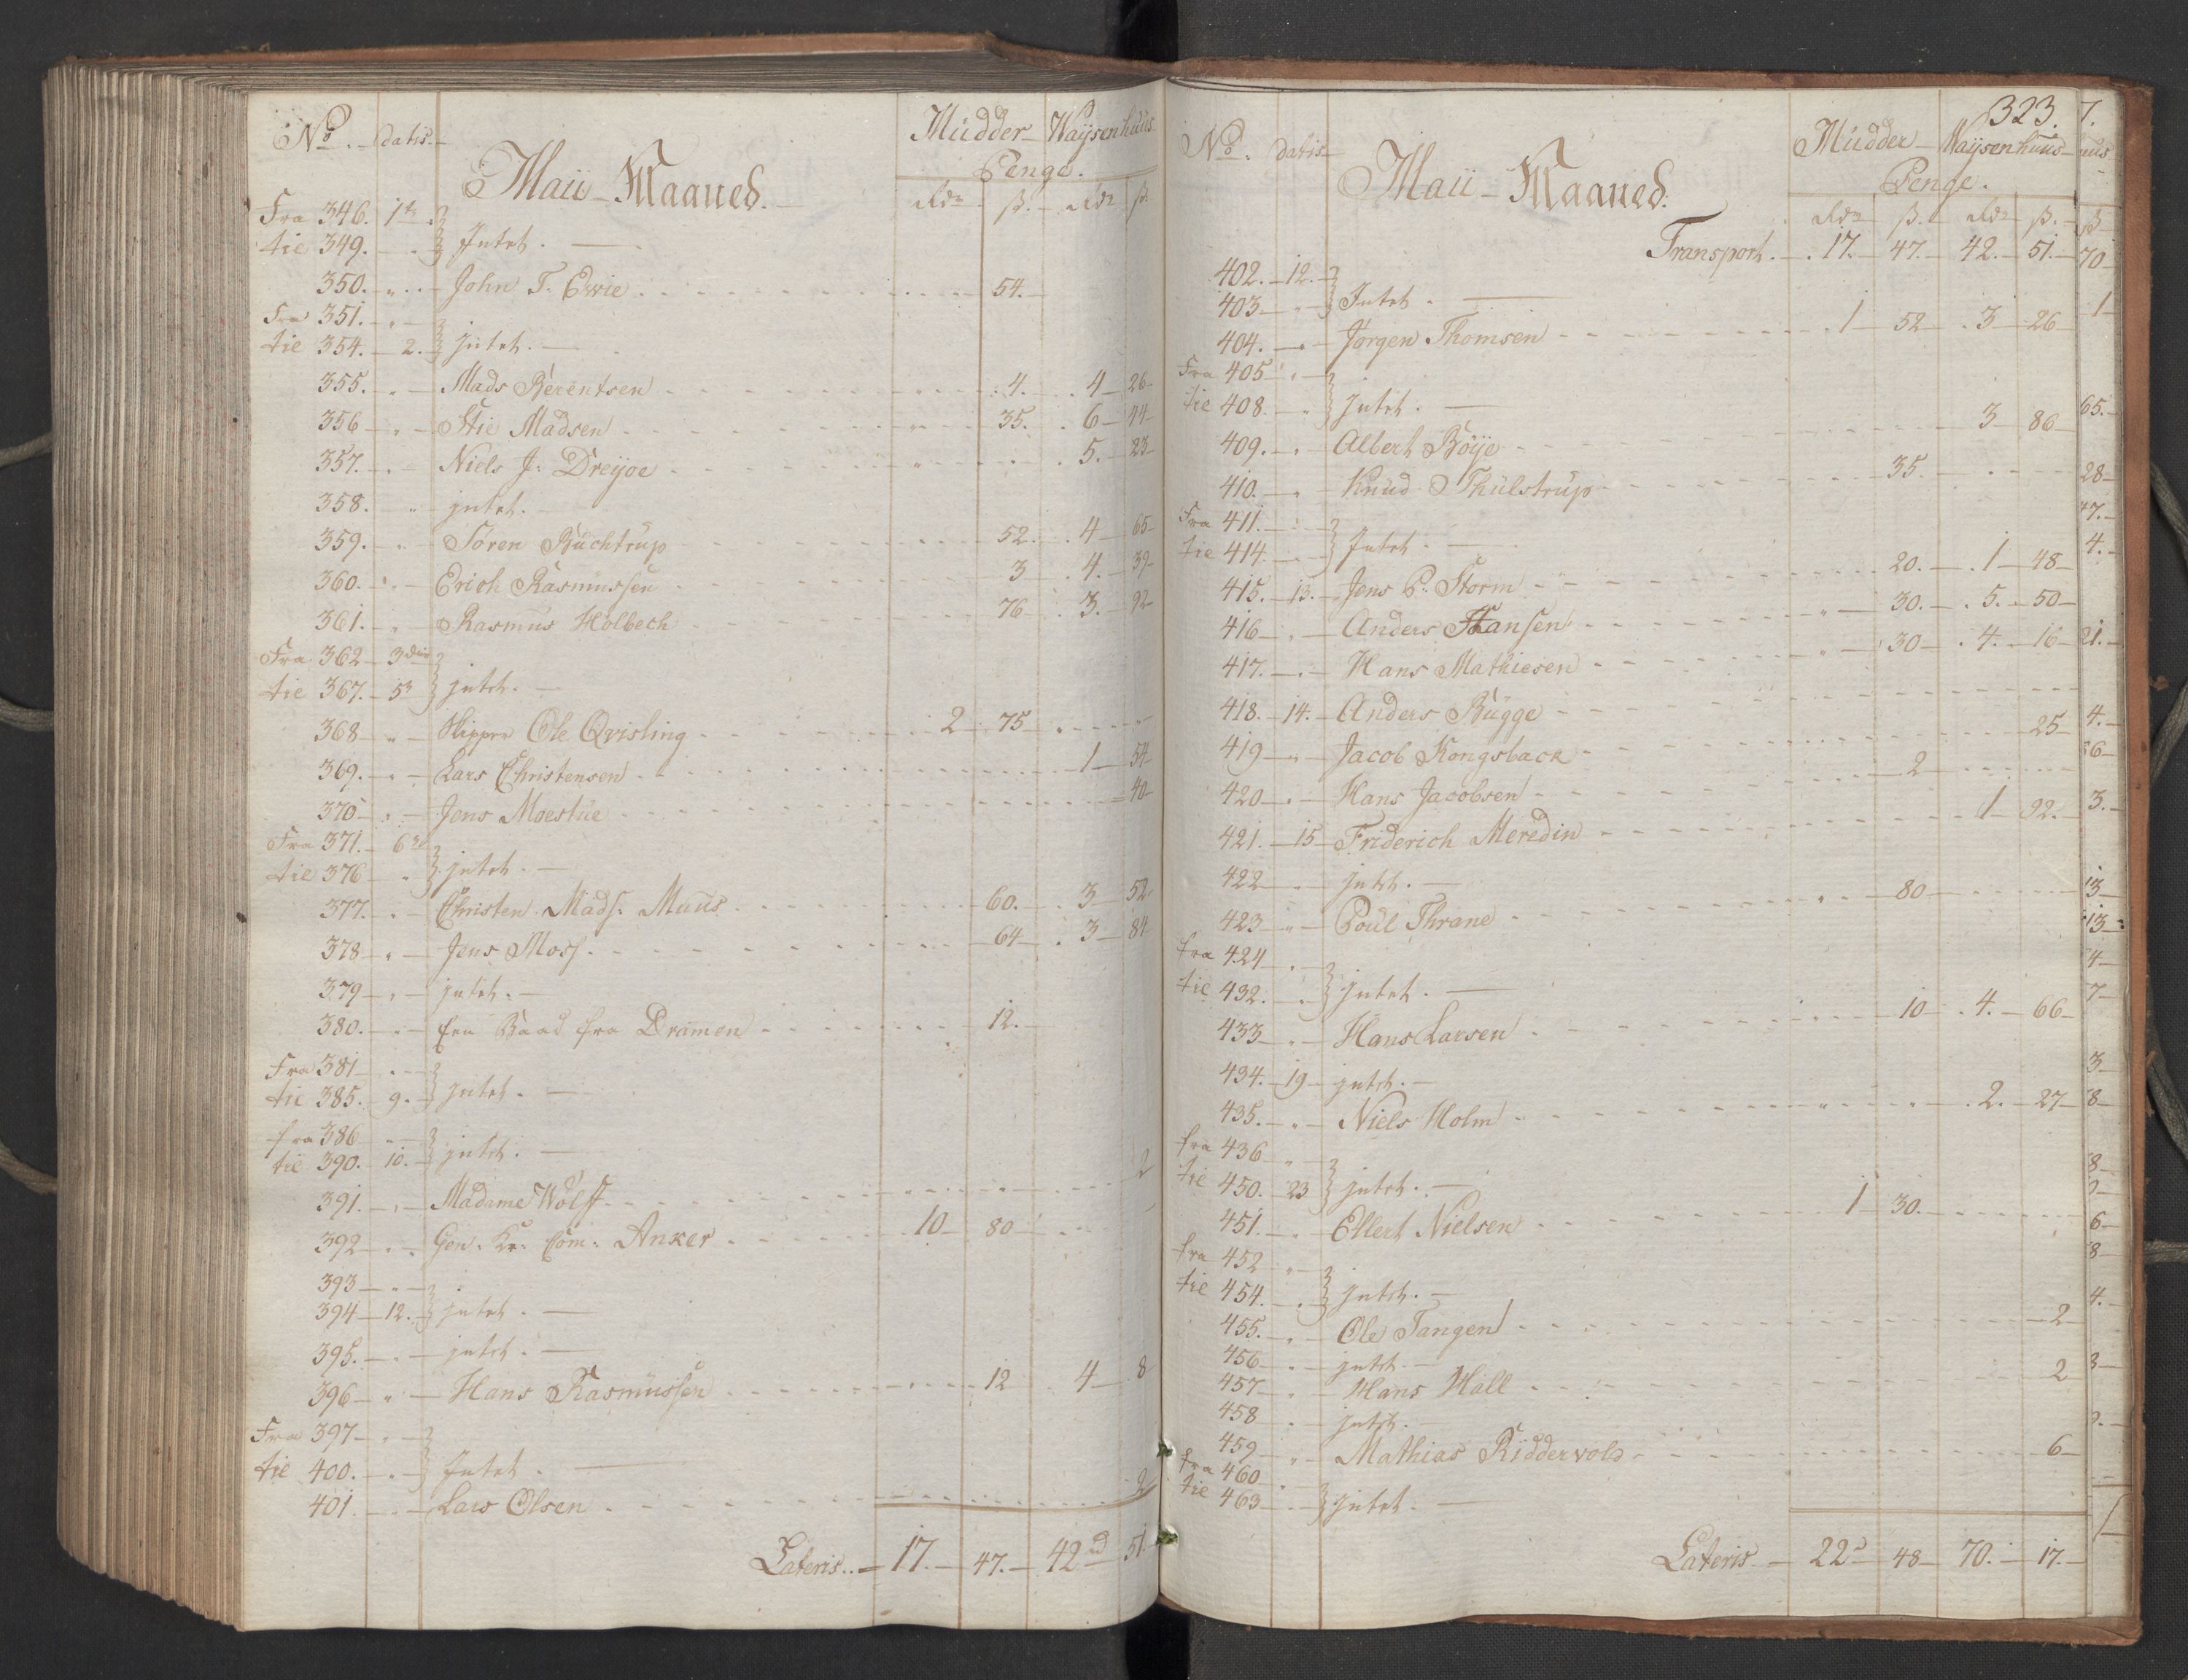 No. datis. Maii Maaned. Mudder Waijsenhuus
Penge.
Rdr ß. Rdr ß.
Fra 346. 1te
tie 349. Intet.
350. " John T. Ewie 54.
Fra 351. "
tie 354. 2. jntet.
355. " Mads Berentsen 4. 4 26
356 " Stie Madsen 35. 6 44
357. " Niels J: Dreijoe 5. 23
358. " jntet.
359. " Sören Buchtrup 52. 4 65
360. " Erich Rasmussen 3 4. 39
361. " Rasmus Holbech 76 3. 92
Fra 362 3die
tie 367. 5t jntet.
368 " Skipper Ole Qvisling 2 75
369. " Lars Christensen 1 54
370 " Jens Moestue 40
Fra 371. 6te
tie 376 " jntet.
377. " Christen Mads: Muus 60. 3 52
378 " Jens Moss. 64 3 84
379 " jntet.
380. " Een Baad fra Dramen 12.
Fra 381 "
tie 385. 9. jntet.
fra 386 "
tie 390. 10. jntet.
391. " Madame Wolff 2
392 " Gen. Kr: Com: Anker 10 80
393 "
394 12. jntet.
395. " jntet.
396 " Hans Rasmussen 12 4 8
Fra 397 "
tie 400. " Intet.
401. " Lars Olsen 2
Lateris. 17. 47. 42 51.
323.
No. datis Maii Maaned. Mudder Waijsenhuus
Penge.
Rdr ß. Rdr ß.
Transport. 17. 47. 42. 51.
402. 12.
403 " Intet.
404. " Jörgen Thomsen 1 52 3 26
Fra 405 "
tie 408. " Jntet.
409. " Albert Böije 3 86
410. " Knud Thulstrup 35
Fra 411. "
tie 414 " Jntet.
415. 13. Jens P. Storm 20. 1 48
416 " Anders Hansen 30. 5. 50
417. " Hans Mathiesen 30 4. 16
418. 14. Anders Bugge
419 " Jacob Kongsback 25
420 " Hans Jacobsen 2
421. 15 Friderich Meredin 1 92.
422 " jntet.
423 " Poul Thrane 80
fra 424 "
tie 432. " jntet.
433 " Hans Larsen 10 4. 66
434. 19 jntet.
435. " Niels Holm 2. 27
fra 436 "
tie 450. 23 jntet.
451. " Ellert Nielsen 1 30.
fra 452 "
tie 454. " jntet.
455. " Ole Tangen 2
456 " jntet.
457 " Hans Hall 2
458 " jntet.
459 " Mathias Riddervold 6
fra 460 "
tie 463 " jntet.
Lateris 22 48 70. 17.